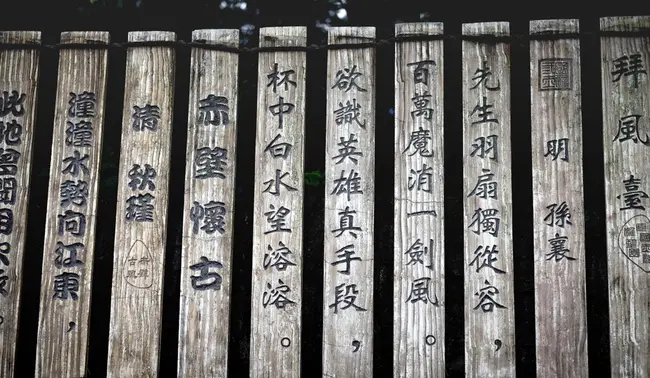 拜風臺
明 孫襄
先生羽扇獨從容,
百萬魔消一劍風。
欲識英雄真手段,
杯中白水望溶溶。
赤壁懷古
清 秋瑾
潼潼水勢向江東,
此地曾聞